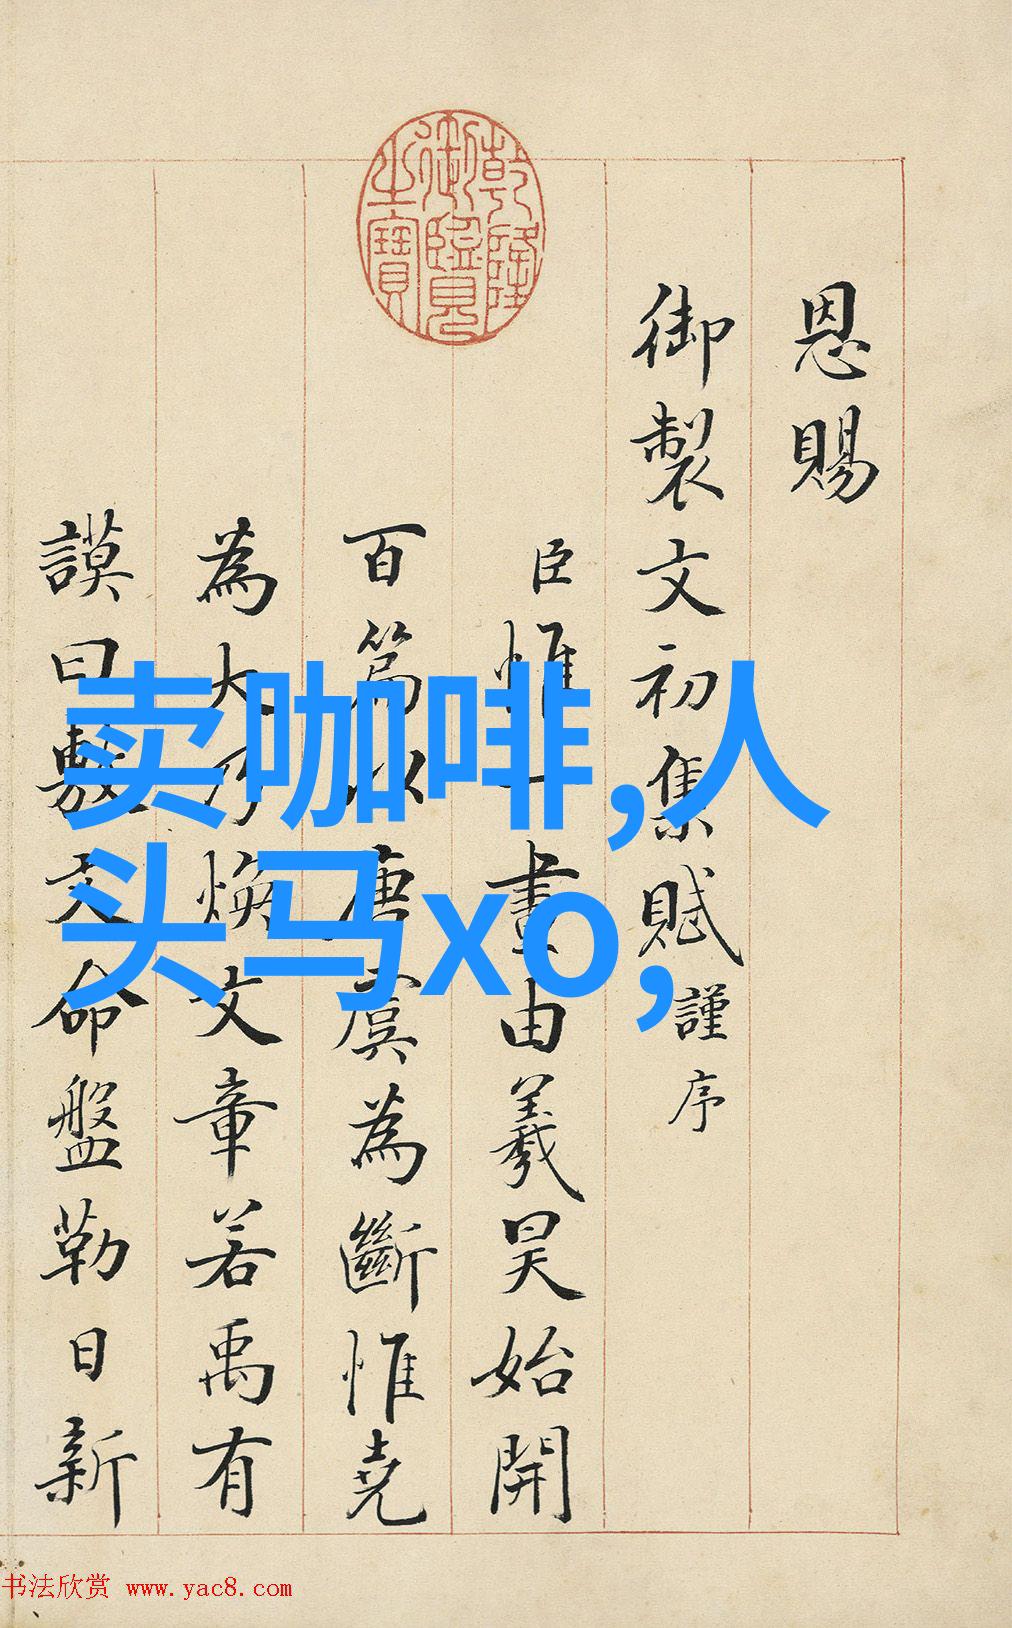 乾隆
御覽
之寶
恩賜
御製文初集賦謹序
臣惟一畫由羲昊始開
百篇以唐虞為斷惟堯
為大乃煥文章若禹有
謨曰敷文命盤勒日新
卖咖啡,人
头马xo,
书法欣赏 www.yac8.com